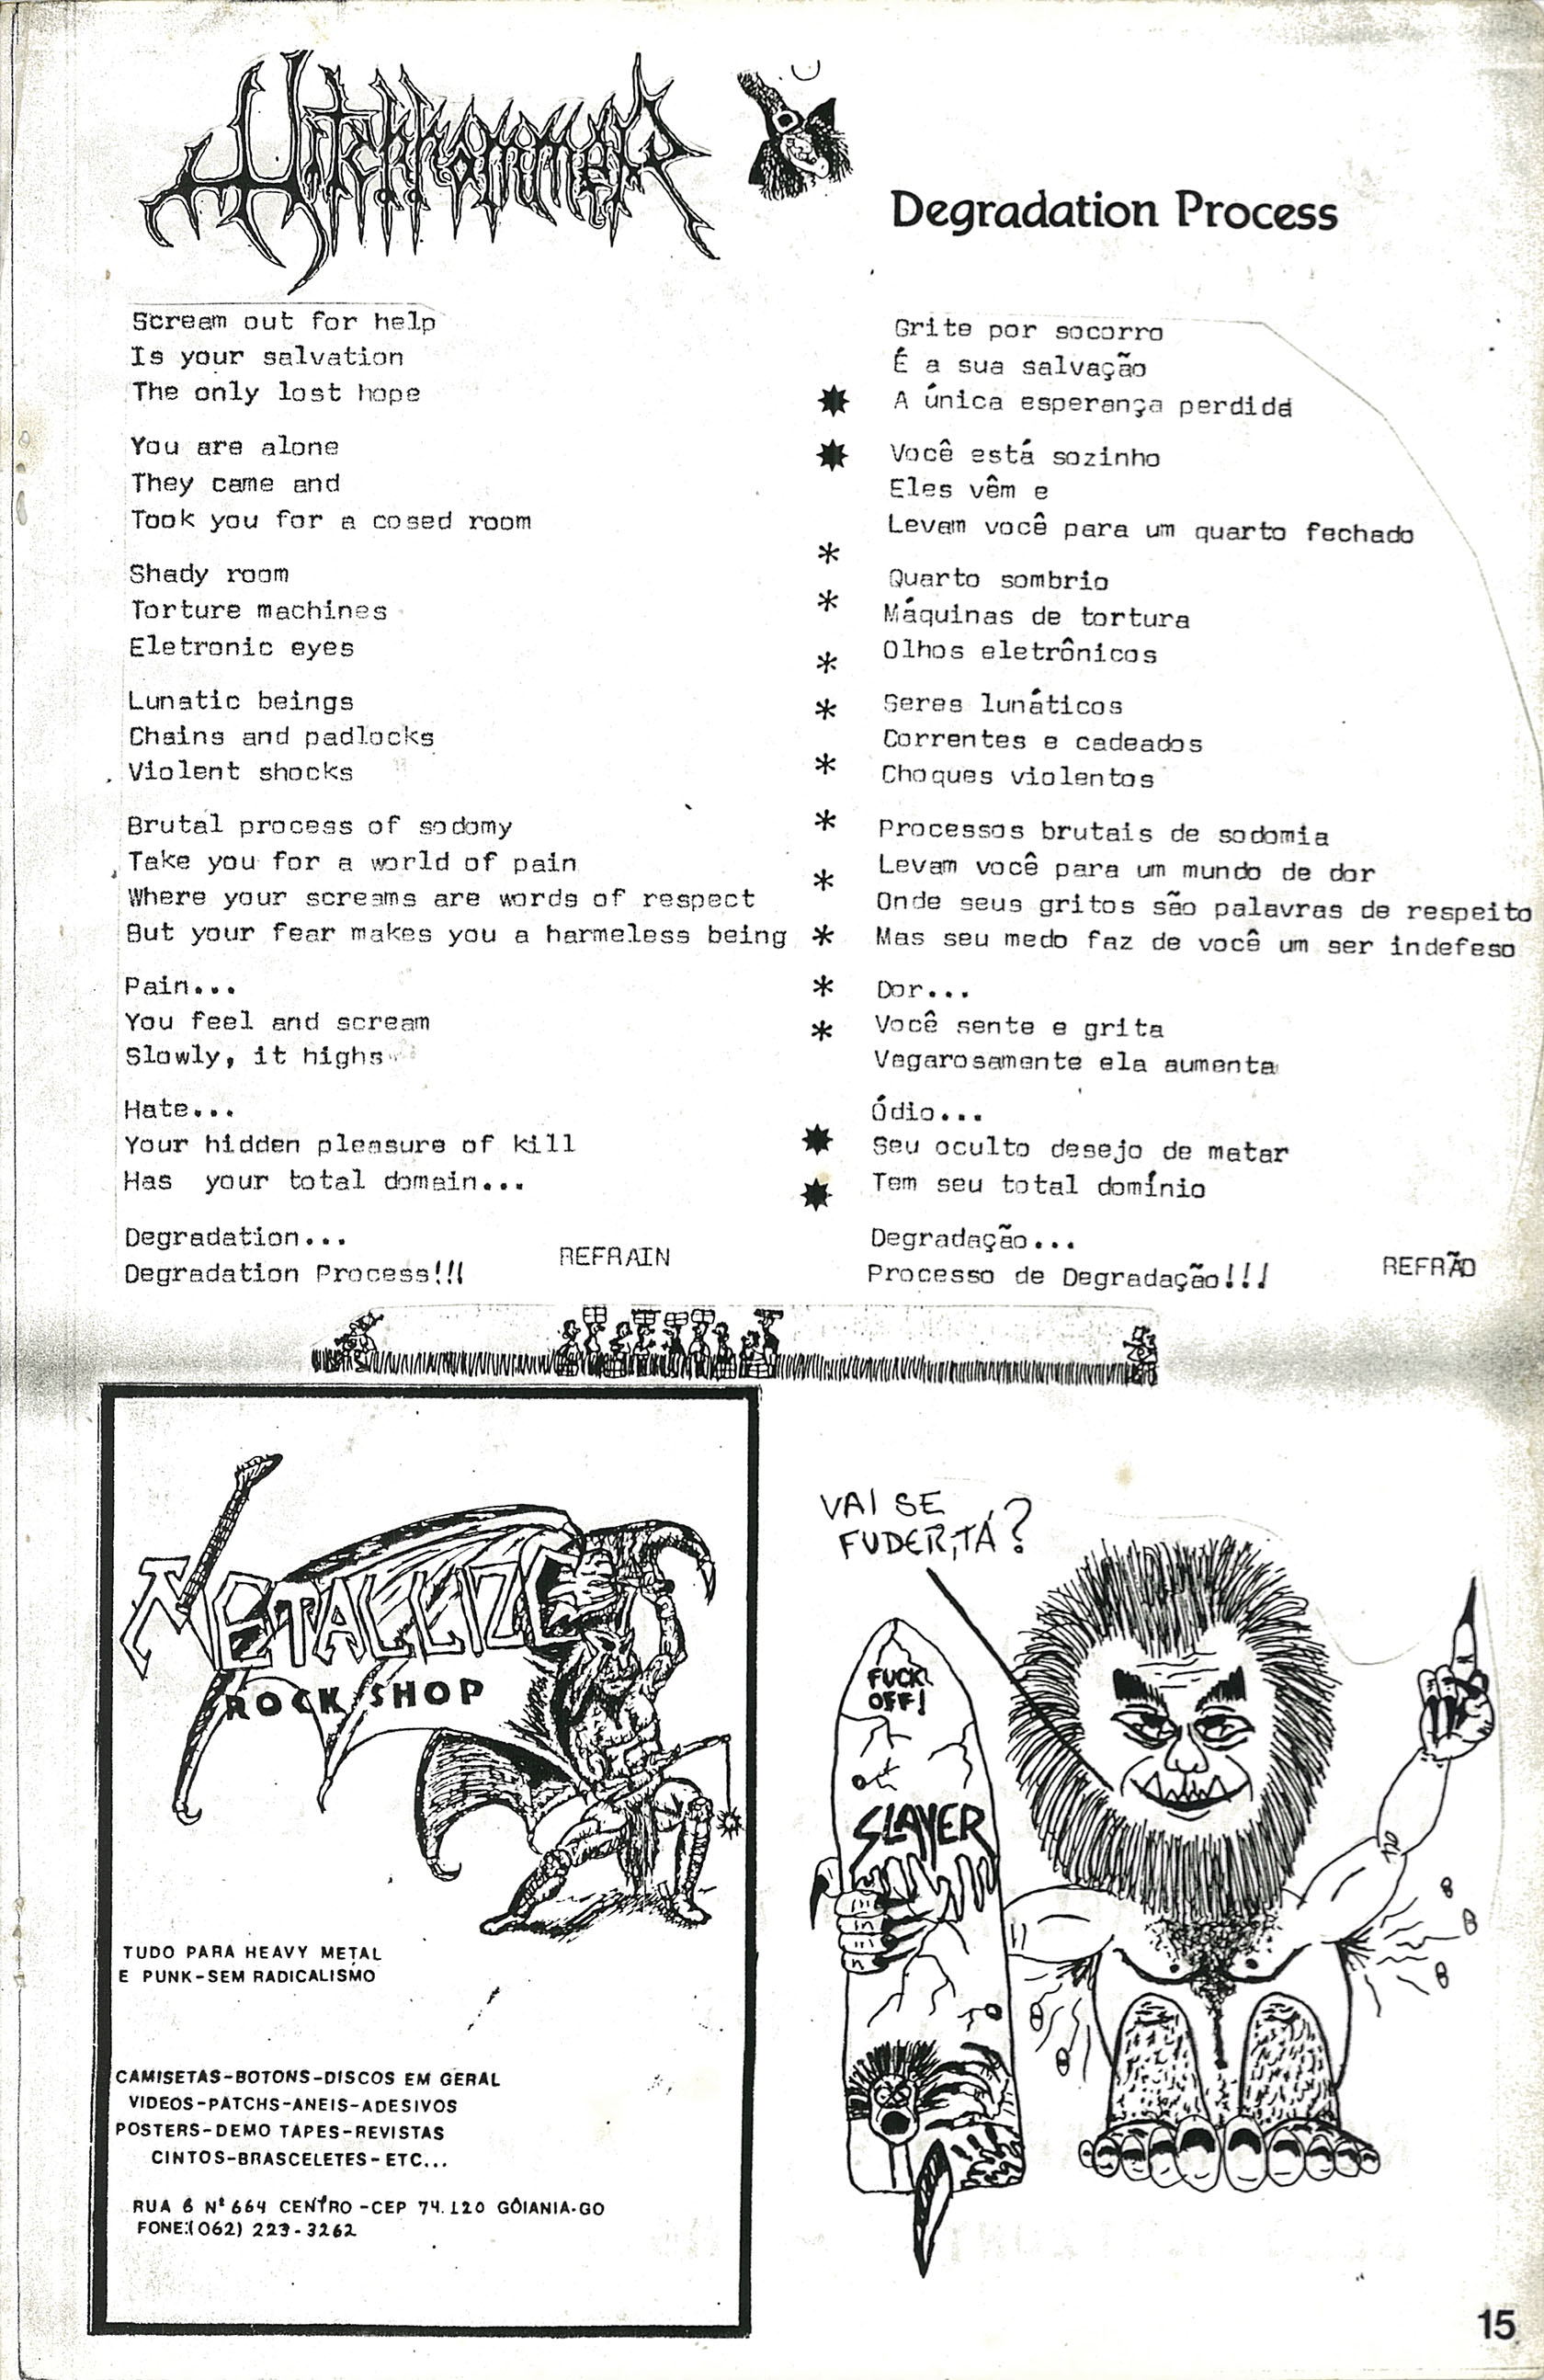 Witchhammer
Degradation Process
Scream out for help
Is your salvation
The only lost hope
You are alone
They came and
Took you for a cosed room
Shady room
Torture machines
Eletronic eyes
Lunatic beings
Chains and padlocks
Violent shocks
Brutal process of sodomy
Take you for a world of pain
Where your screams are words of respect
But your fear makes you a harmeless being
Pain...
You feel and scream
Slowly, it highs
Hate...
Your hidden pleasure of kill
Has your total domain...
Degradation...
Degradation Process!!!
REFRAIN
Grite por socorro
É a sua salvação
A única esperança perdida
Você está sozinho
Eles vêm e
Levam você para um quarto fechado
Quarto sombrio
Máquinas de tortura
Olhos eletrônicos
Seres lunáticos
Correntes e cadeados
Choques violentos
Processos brutais de sodomia
Levam você para um mundo de dor
Onde seus gritos são palavras de respeito
Mas seu medo faz de você um ser indefeso
Dor...
Você sente e grita
Vagarosamente ela aumenta
Ódio...
Seu oculto desejo de matar
Tem seu total domínio
Degradação...
Processo de Degradação!!!
REFRÃO
METALLIZE
ROCK SHOP
TUDO PARA HEAVY METAL
E PUNK-SEM RADICALISMO
CAMISETAS-BOTONS-DISCOS EM GERAL
VIDEOS-PATCHS-ANEIS-ADESIVOS
POSTERS-DEMO TAPES-REVISTAS
CINTOS-BRASCELETES-ETC...
RUA 6 Nº 664 CENTRO-CEP 74.120 GÔIANIA-GO
FONE:(062) 223-3262
VAI SE
FUDER,TÁ?
FUCK
OFF!
SLAYER
15